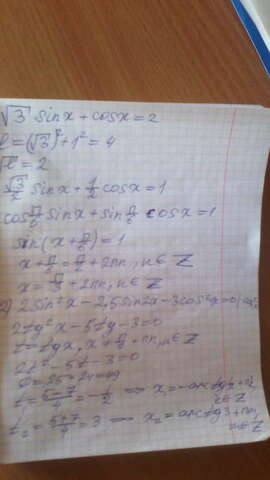 √3 sinx + cosx = 2
l = (√3)² + 1² = 4
√l = 2
√3/2 sinx + 1/2 cosx = 1
cos π/6 sinx + sin π/6 cosx = 1
sin(x + π/6) = 1
x + π/6 = π/2 + 2πn, n ∈ Z
x = π/3 + 2πn, n ∈ Z
2) 2sin²x - 2,5sin2x - 3cos²x = 0
2tg²x - 5tgx - 3 = 0
t = tgx, x ≠ π/2 + πn, n ∈ Z
2t² - 5t - 3 = 0
D = 25 + 24 = 49
t₁ = (5-7)/4 = -1/2 ⟹ x₁ = -arctg 1/2 + πn, n ∈ Z
t₂ = (5+7)/4 = 3 ⟹ x₂ = arctg3 + πn, n ∈ Z